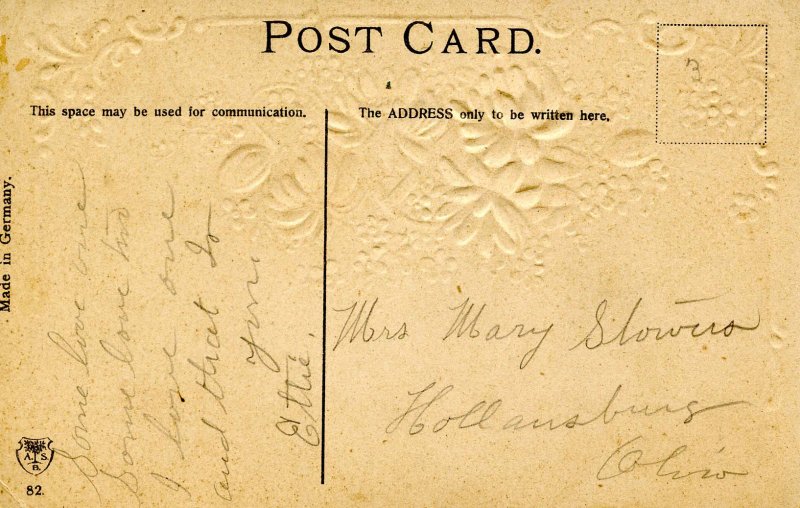 POST CARD.
This space may be used for communication.
The ADDRESS only to be written here.
3
Made in Germany.
Some love one
Some love two
I love one
and that Is
you
Ettie.
Mrs Mary Stowers
Hollansburg
Ohio
A. S.
B.
82.